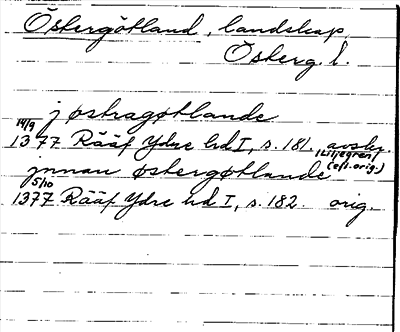 Östergötland, landskap
Österg. l.
j østragøtlande
14/9
1377 Rääf Ydre hd I, s. 181. avskr.
(Liljegren
(eft. orig.)
jnnan østergøtlande
5/10
1377 Rääf Ydre hd I, s. 182. orig.